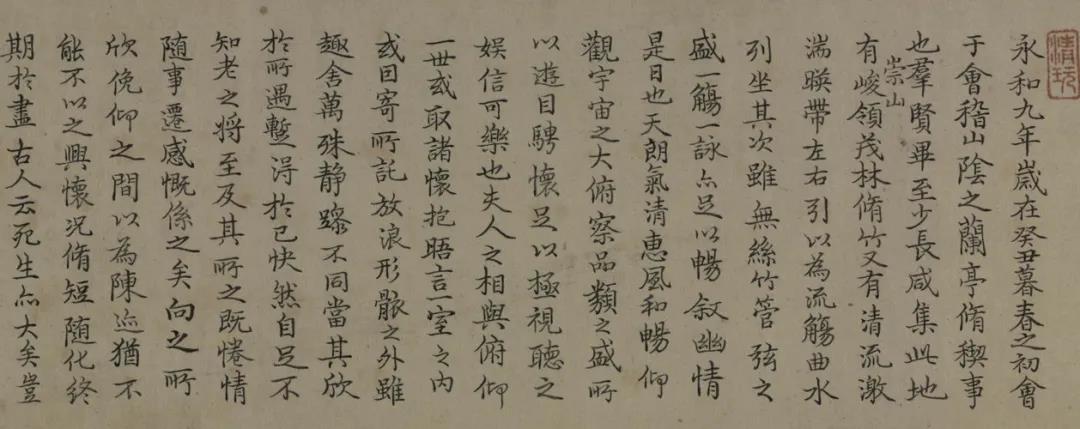 清玩
永和九年歲在癸丑暮春之初會
于會稽山陰之蘭亭脩稧事
也羣賢畢至少長咸集此地
崇山
有峻領茂林脩竹又有清流激
湍暎帶左右引以為流觴曲水
列坐其次雖無絲竹管弦之
盛一觴一詠亦足以暢敘幽情
是日也天朗氣清惠風和暢仰
觀宇宙之大俯察品類之盛所
以遊目騁懷足以極視聽之
娛信可樂也夫人之相與俯仰
一世或取諸懷抱晤言一室之內
或因寄所託放浪形骸之外雖
趣舍萬殊静躁不同當其欣
於所遇蹔得於己快然自足不
知老之将至及其所之既惓情
随事遷感慨係之矣向之所
欣俛仰之間以為陳迹猶不
能不以之興懷况脩短随化終
期於盡古人云死生亦大矣豈